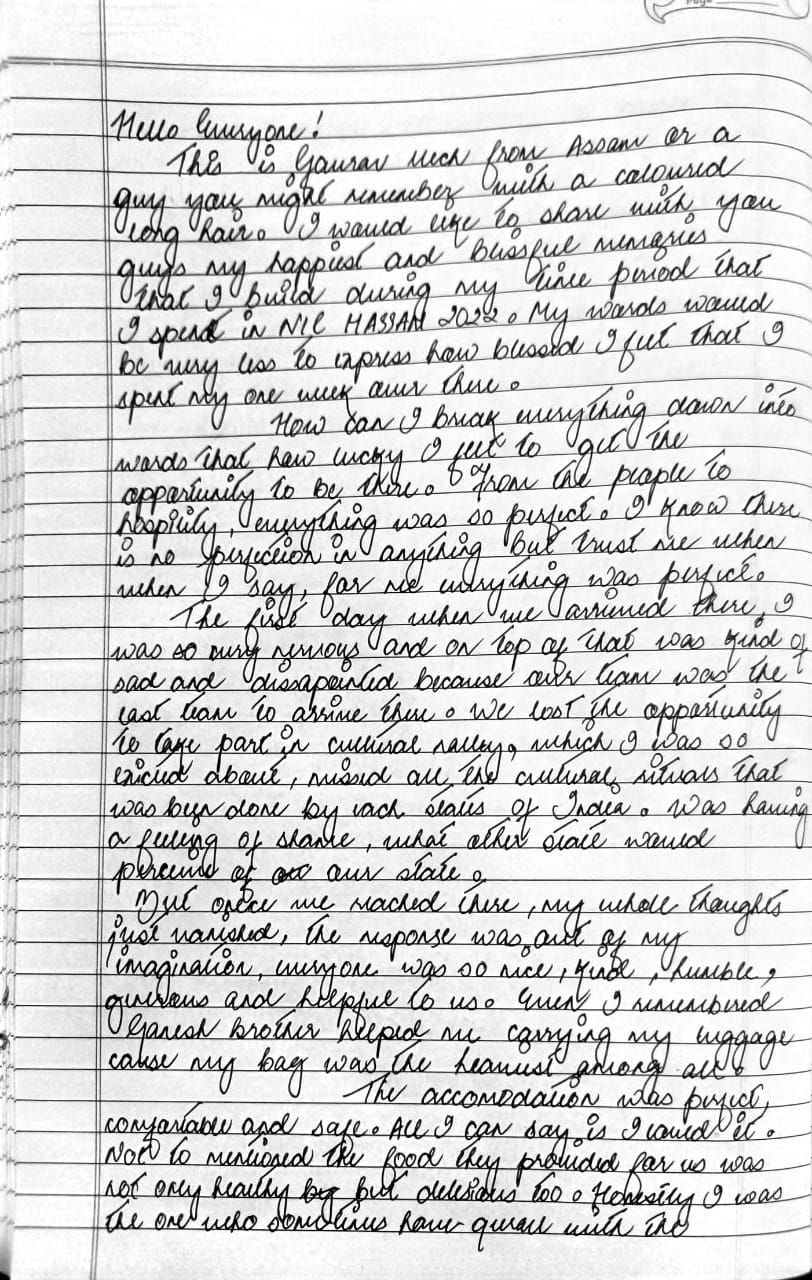 Page
Hello Everyone!
This is Gaurav Mech from Assam or a
guy you might remember with a coloured
long hair. I would like to share with you
guys my happiest and blissful memories
that I build during my time period that
I spend in NIC HASSAN 2022. My words would
be very less to express how blessed I felt that I
spent my one week over there.
How can I break everything down into
words that how lucky I felt to get the
opportunity to be there. From the people to
hospitily, everything was so perfect. I know there
is no perfection in anything but trust me when
when I say, for me everything was perfect.
The first day when we arrived there, I
was so very nervous and on top of that was kind of
sad and dissapointed because our team was the
last team to arrive there. We lost the opportunity
to take part in cultural rally, which I was so
excited about, missed all the cultural rituals that
was been done by each states of India. Was having
a feeling of shame, what other state would
perceive of our state.
But once we reached there, my whole thoughts
just vanished, the response was out of my
imagination, everyone was so nice, kind, humble,
generous and helpful to us. Even I remembered
Ganesh brother helped me carrying my luggage
cause my bag was the heaviest among all.
The accomodation was perfect,
comfortable and safe. All I can say is I loved it.
Not to mentioned the food they provided for us was
not only healthy but delisious too. Honestly I was
the one who sometimes have quarel with the